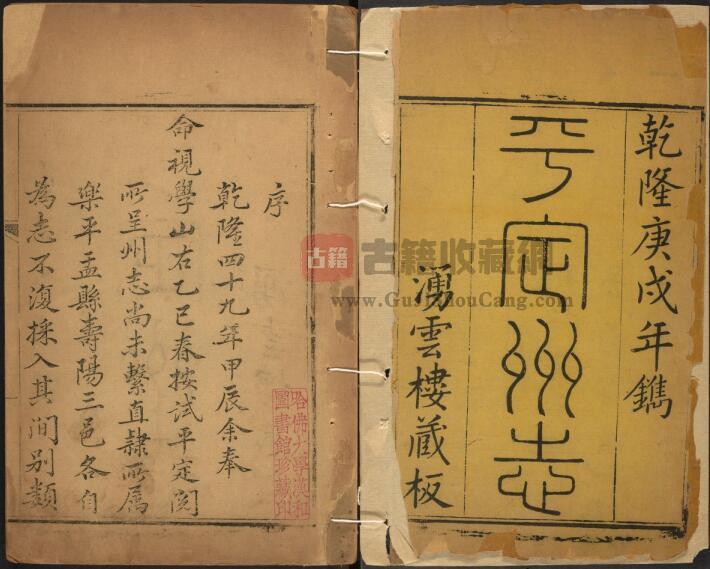 乾隆庚戌年鐫
平定州志
湧雲樓藏板
序
乾隆四十九年甲辰余奉
命視學山右乙巳春按試平定閱
所呈州志尚未繫直隸所屬
樂平盂縣壽陽三邑各自
為志不復採入其間別類
哈佛大學漢和
圖書館珍藏印
古籍
古籍收藏網
www.GuJiShouCang.com